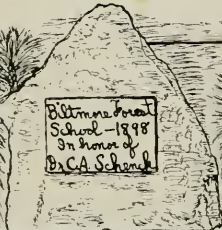 Biltmore Forest
School - 1898
In honor of
Dr. C.A. Schenck